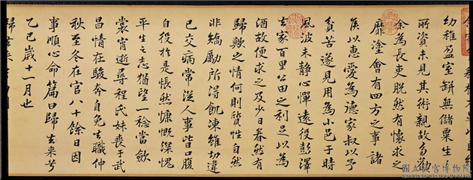 幼稚盈室缾無儲粟生生
所資未見其術親故多勸
余為長吏脫然有懷求之
靡塗會有四方之事諸
侯以惠愛為德家叔以予
貧苦遂見用為小邑于時
風波未靜心憚遠役彭澤
去家百里公田之利足以為
酒故便求之及少日眷然有
歸歟之情何則質性自然
非矯勵所得飢凍雖切違
己交病常從事皆口腹
自役於是悵然慷慨深愧
平生之志猶望一稔當斂
裳宵逝尋程氏妹喪于武
昌情在駿奔自免去職仲
秋至冬在官八十餘日因
事順心命篇曰歸去來兮
乙巳歲十一月也
國立故宮博物院